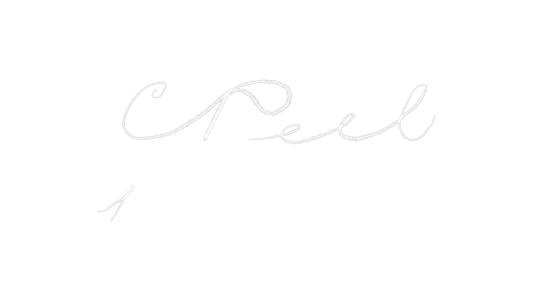 C Peel